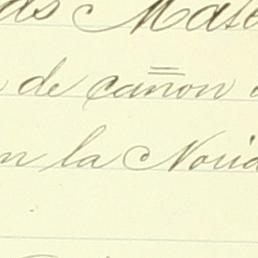 as Mate
de cañon
en la Noria